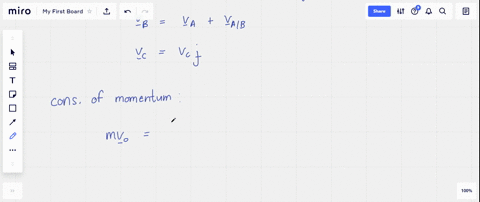 miro My First Board Share
v_B = v_A + v_A/B
v_C = v_C j
cons. of momentum :
mv_0 =
100%